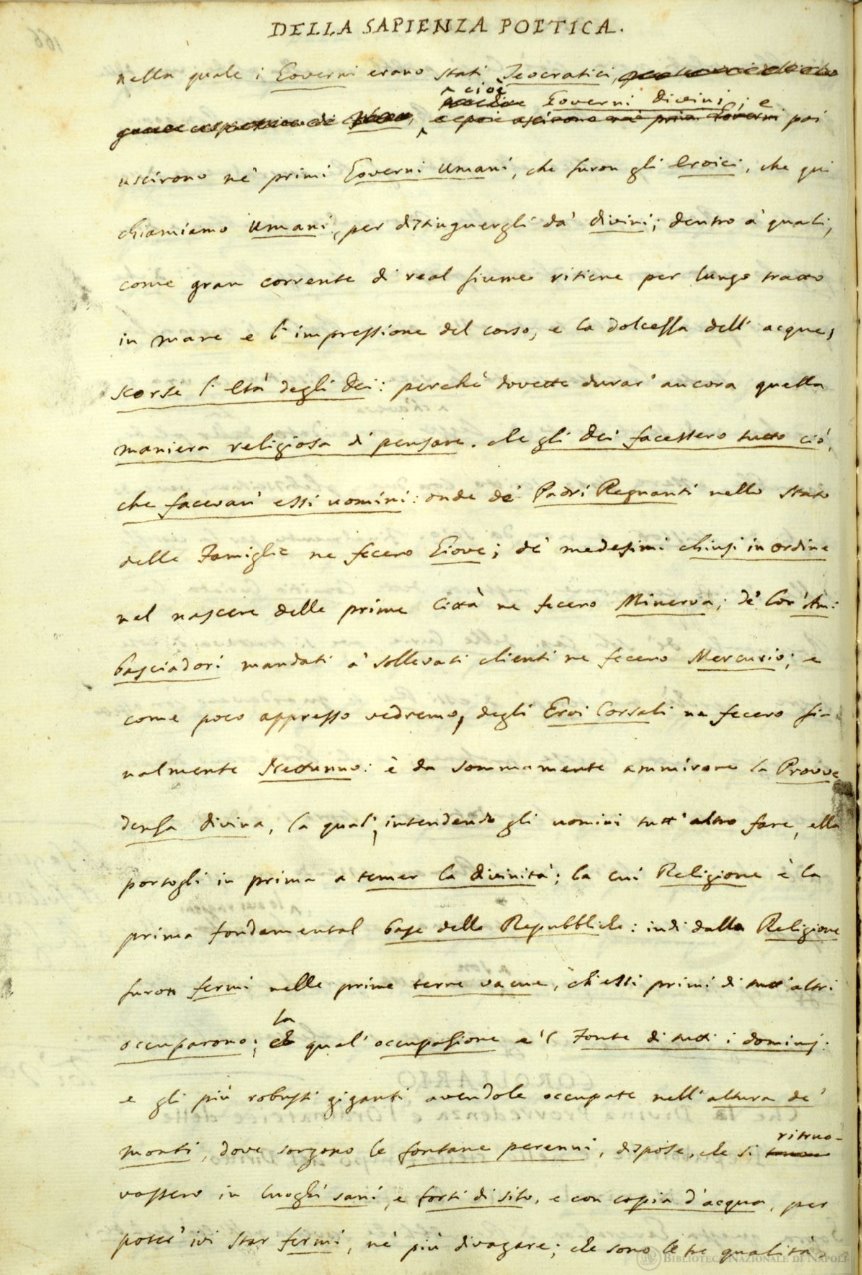 DELLA SAPIENZA POETICA.
nella quale i Governi erano stati Teocratici,
cioè Governi divini; e
poi
uscirono ne' primi Governi Umani, che furon gli Eroici, che qui
chiamiamo Umani, per distinguergli da' divini; dentro a' quali,
come gran corrente di real fiume ritiene per lungo tratto
in mare e l'impressione del corso, e la dolcezza dell' acque,
scorse l' Età degli Dei: perchè dovette durar' ancora quella
maniera religiosa di pensare, che gli Dei facessero tutto ciò,
che facevan' essi uomini: onde de' Padri Regnanti nello Stato
delle Famiglie ne fecero Giove; de' medesimi chiusi in ordine
nel nascere delle prime Città ne fecero Minerva; de' lor' Am:
basciadori mandati a' sollevati clienti ne fecero Mercurio; e
come poco appresso vedremo, degli Eroi Corsali ne fecero fi-
nalmente Nettunno: è da sommamente ammirare la Provve
denza divina, la qual', intendendo gli uomini tutt' altro fare, ella
portogli in prima a temer la divinità; la cui Religione è la
prima fondamental base delle Repubbliche: indi dalla Religione
furon fermi nelle prime terre vacue, ch'essi primi di tutt' altri
occuparono;
la
qual' occupazione è 'l Fonte di tutti i dominj:
e gli più robusti giganti avendole occupate nell' altura de'
monti, dove sorgono le fontane perenni, dispose, che si
ritruo-
vassero in luoghi sani, e forti di sito, e con copia d'acqua, per
potere' ivi star fermi, nè più divagare; che sono le tre qualità,
BIBLIOTECA NAZIONALE DI NAPOLI